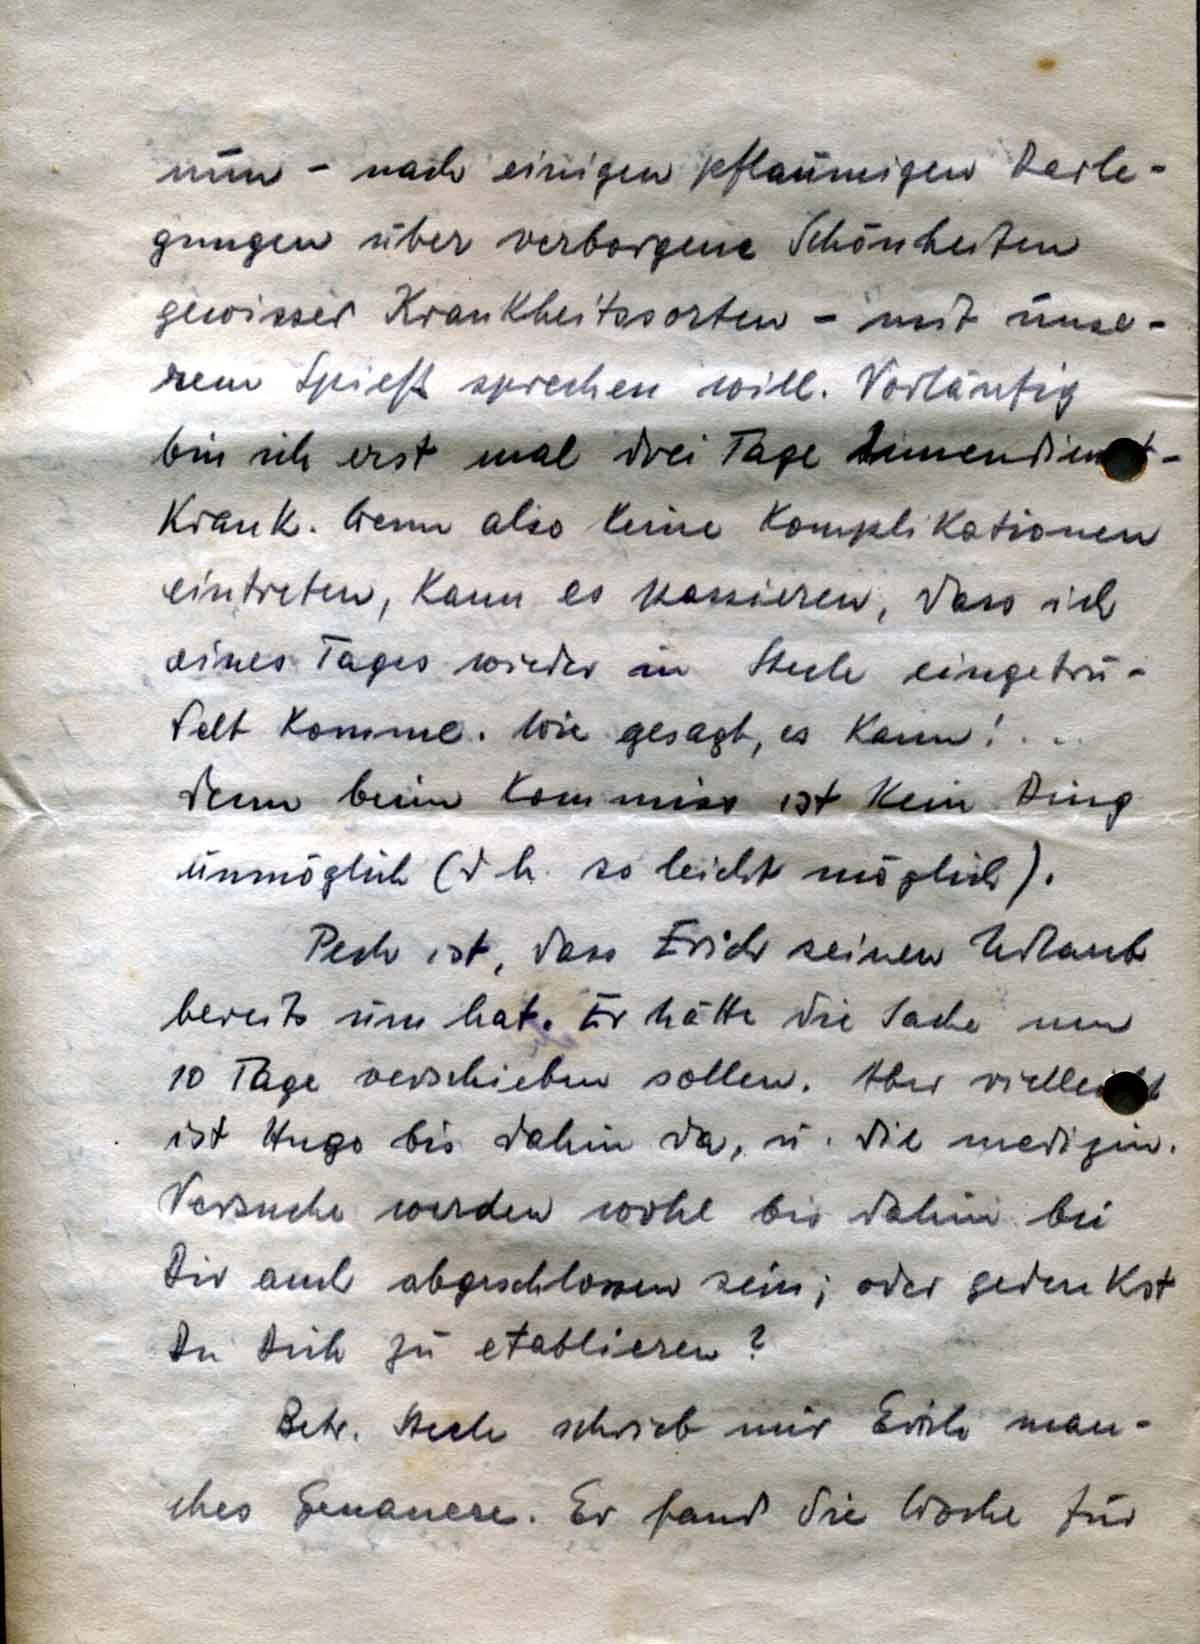 nun - nach einigen pflaumigen Darle-
gungen über verborgene Schönheiten
gewisser Krankheitssorten - mit unse-
rem Spieß sprechen will. Vorläufig
bin ich erst mal drei Tage Innendienst-
Krank. Wenn also keine Komplikationen
eintreten, kann es passieren, dass ich
eines Tages wieder in Steele eingetru-
delt komme. Wie gesagt, es kann! . .
denn beim Kommiss ist kein Ding
unmöglich (d h. so leicht möglich).
Pech ist, dass Erich seinen Urlaub
bereits um hat. Er hätte die Sache um
10 Tage verschieben sollen. Aber vielleicht
ist Hugo bis dahin da, u. die medizin.
Versuche werden wohl bis dahin bei
Dir auch abgeschlossen sein; oder gedenkst
Du Dich zu etablieren?
Betr. Steele schrieb mir Erich man-
ches Genauere. Er fand die Woche für